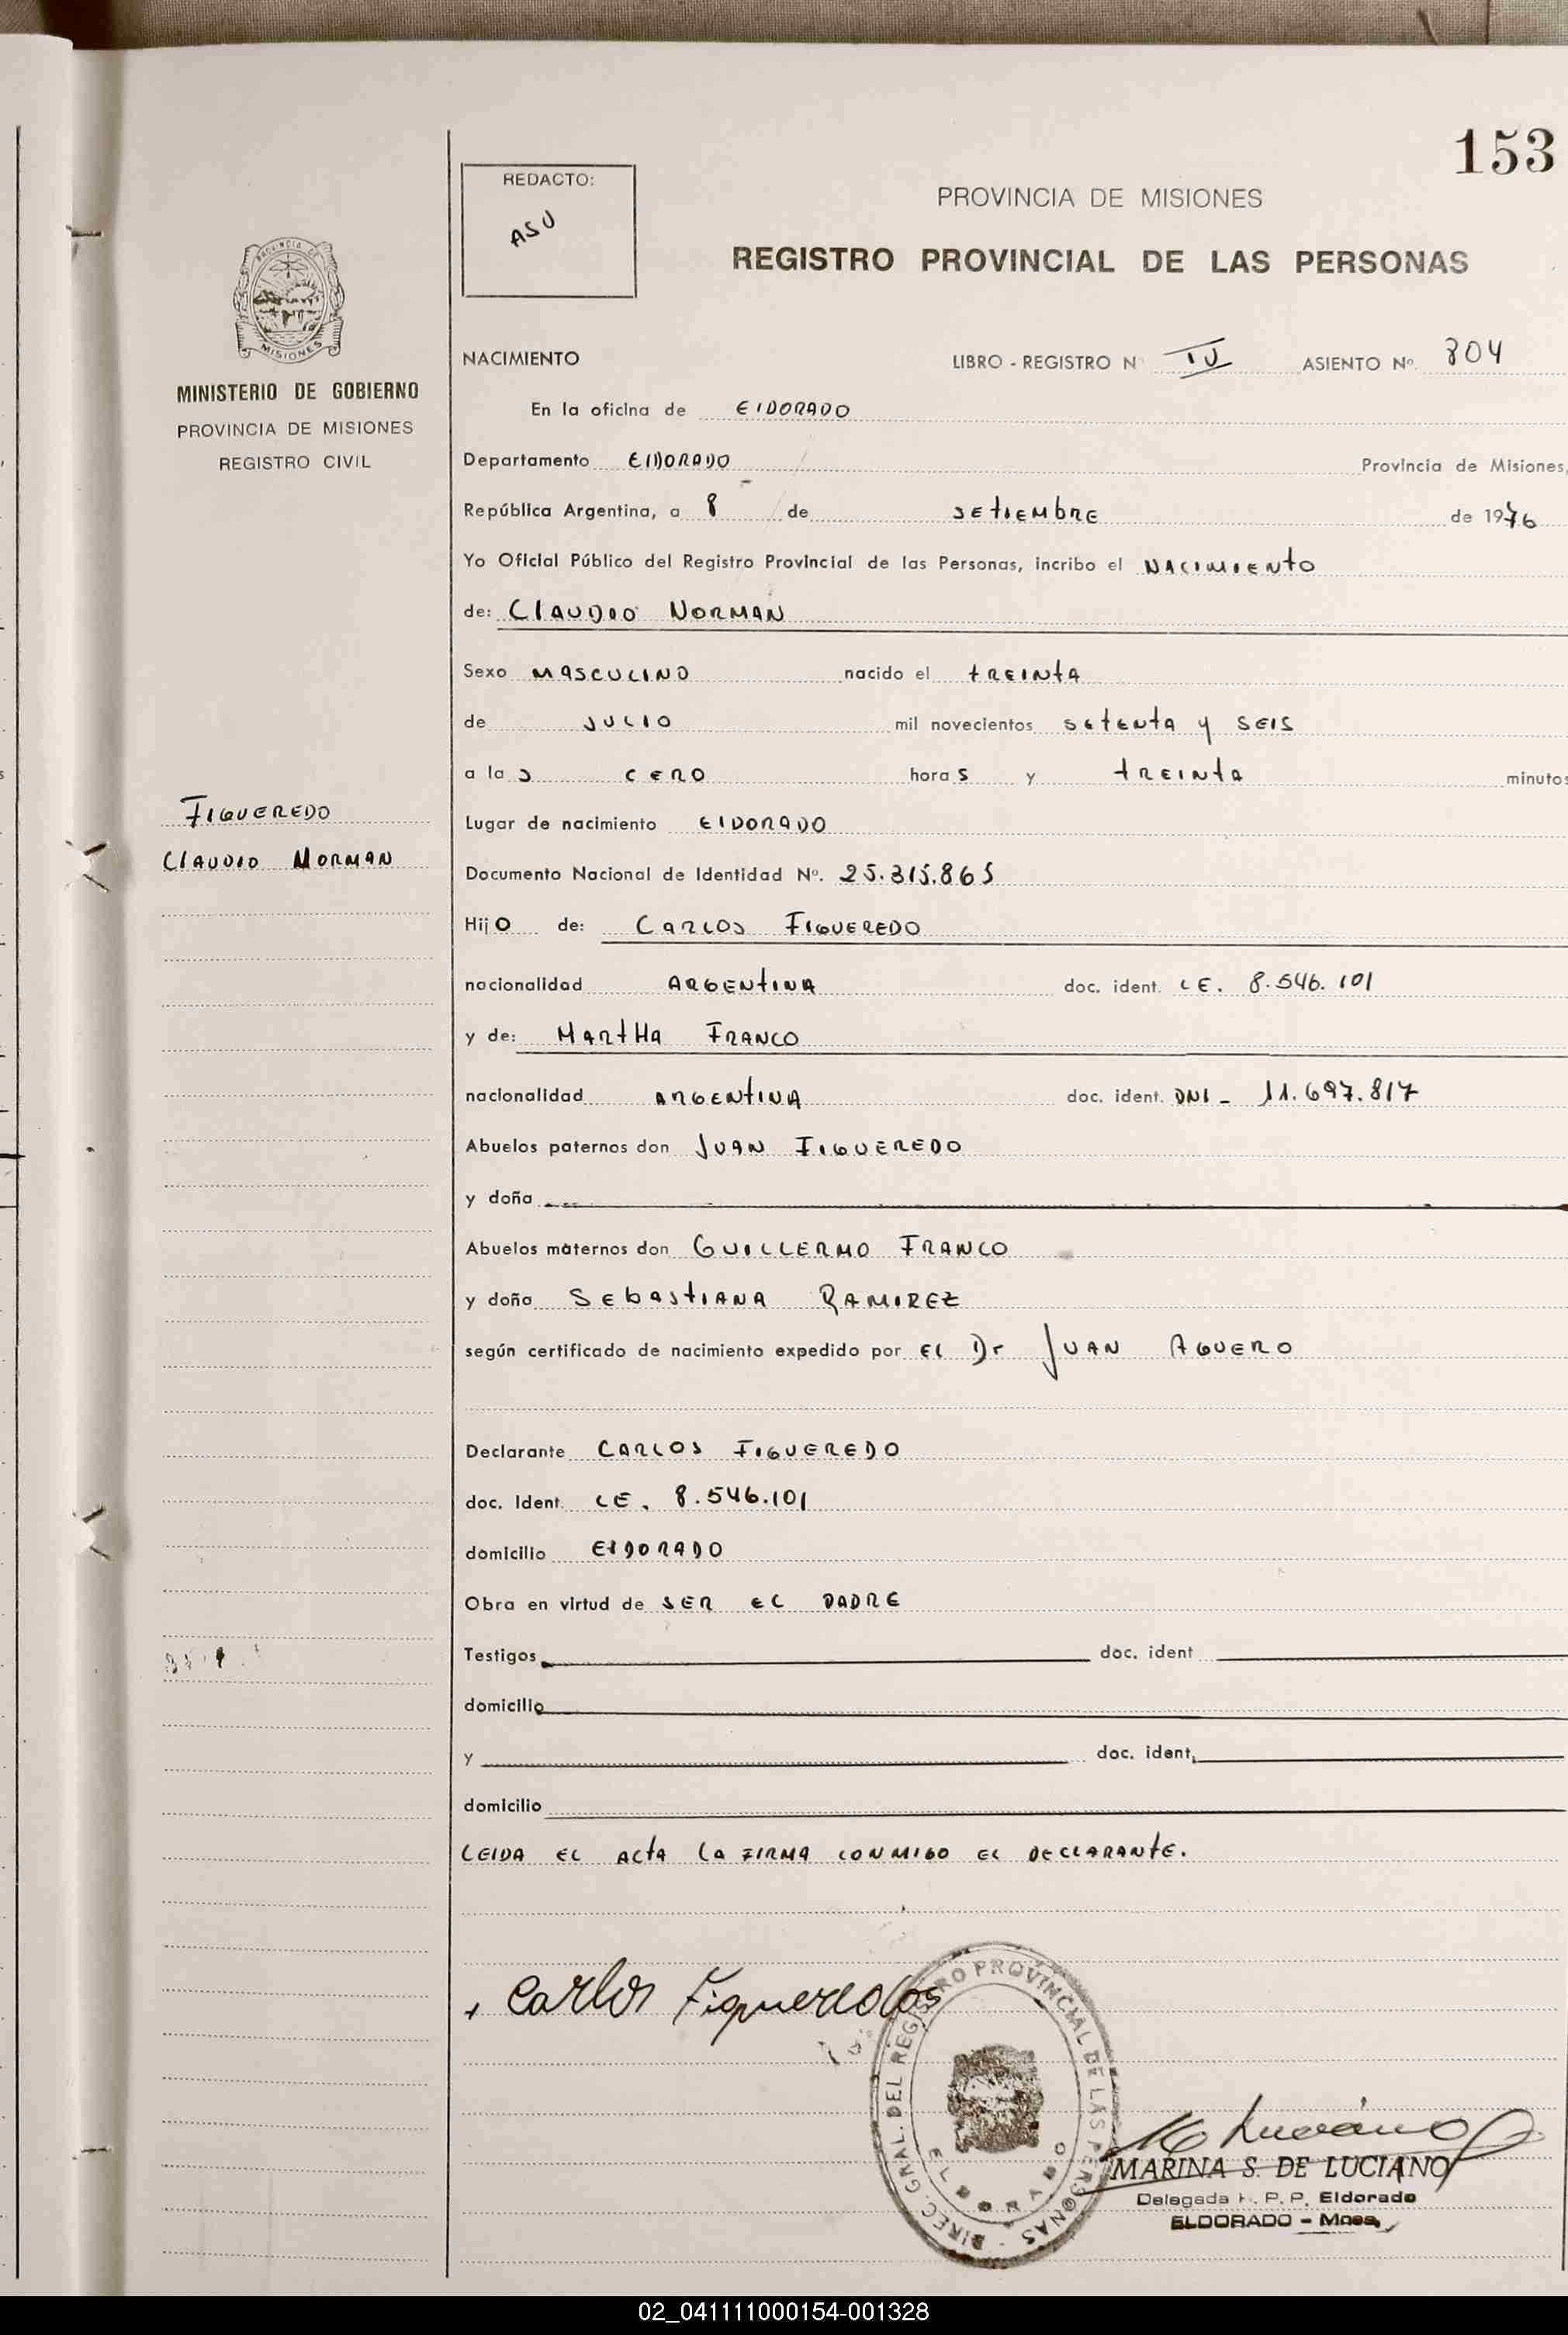 153
REDACTO:
ASU
PROVINCIA DE MISIONES
REGISTRO PROVINCIAL DE LAS PERSONAS
PROVINCIA DE
MISIONES
MINISTERIO DE GOBIERNO
PROVINCIA DE MISIONES
REGISTRO CIVIL
FIGUEREDO
CLAUDIO NORMAN
NACIMIENTO LIBRO - REGISTRO Nº IV ASIENTO Nº 804
En la oficina de ElDORADO
Departamento ElDORADO Provincia de Misiones,
República Argentina, a 8 de SEtIEMbRE de 1976
Yo Oficial Público del Registro Provincial de las Personas, incribo el NACIMIENtO
de: ClAUDIO NORMAN
Sexo MASCULINO nacido el tREINtA
de JULIO mil novecientos SEtENtA y SEIS
a las CERO horas y tREINtA minutos
Lugar de nacimiento ElDORADO
Documento Nacional de Identidad Nº. 25.315.865
Hijo de: CARLOS FIGUEREDO
nacionalidad ARGENtINA doc. ident. LE. 8.546.101
y de: MARtHA FRANCO
nacionalidad ARGENtINA doc. ident. DNI - 11.697.817
Abuelos paternos don JUAN FIGUEREDO
y doña
Abuelos maternos don GUILLERMO FRANCO
y doña SEbAStIANA RAMIREZ
según certificado de nacimiento expedido por EL Dr JUAN AGUERO
Declarante CARLOS FIGUEREDO
doc. Ident. LE. 8.546.101
domicilio ElDORADO
Obra en virtud de SER EL PADRE
Testigos doc. ident
domicilio
y doc. ident.
domicilio
LEIDA EL ACtA LA FIRMA CONMIGO EL DECLARANtE.
Carlos Figueredo
DIREC. GRAL. DEL REGISTRO PROVINCIAL DE LAS PERSONAS
ELDORADO
M Luciano
MARINA S. DE LUCIANO
Delegada R. P. P. Eldorado
ELDORADO - Mnes.
02_041111000154-001328